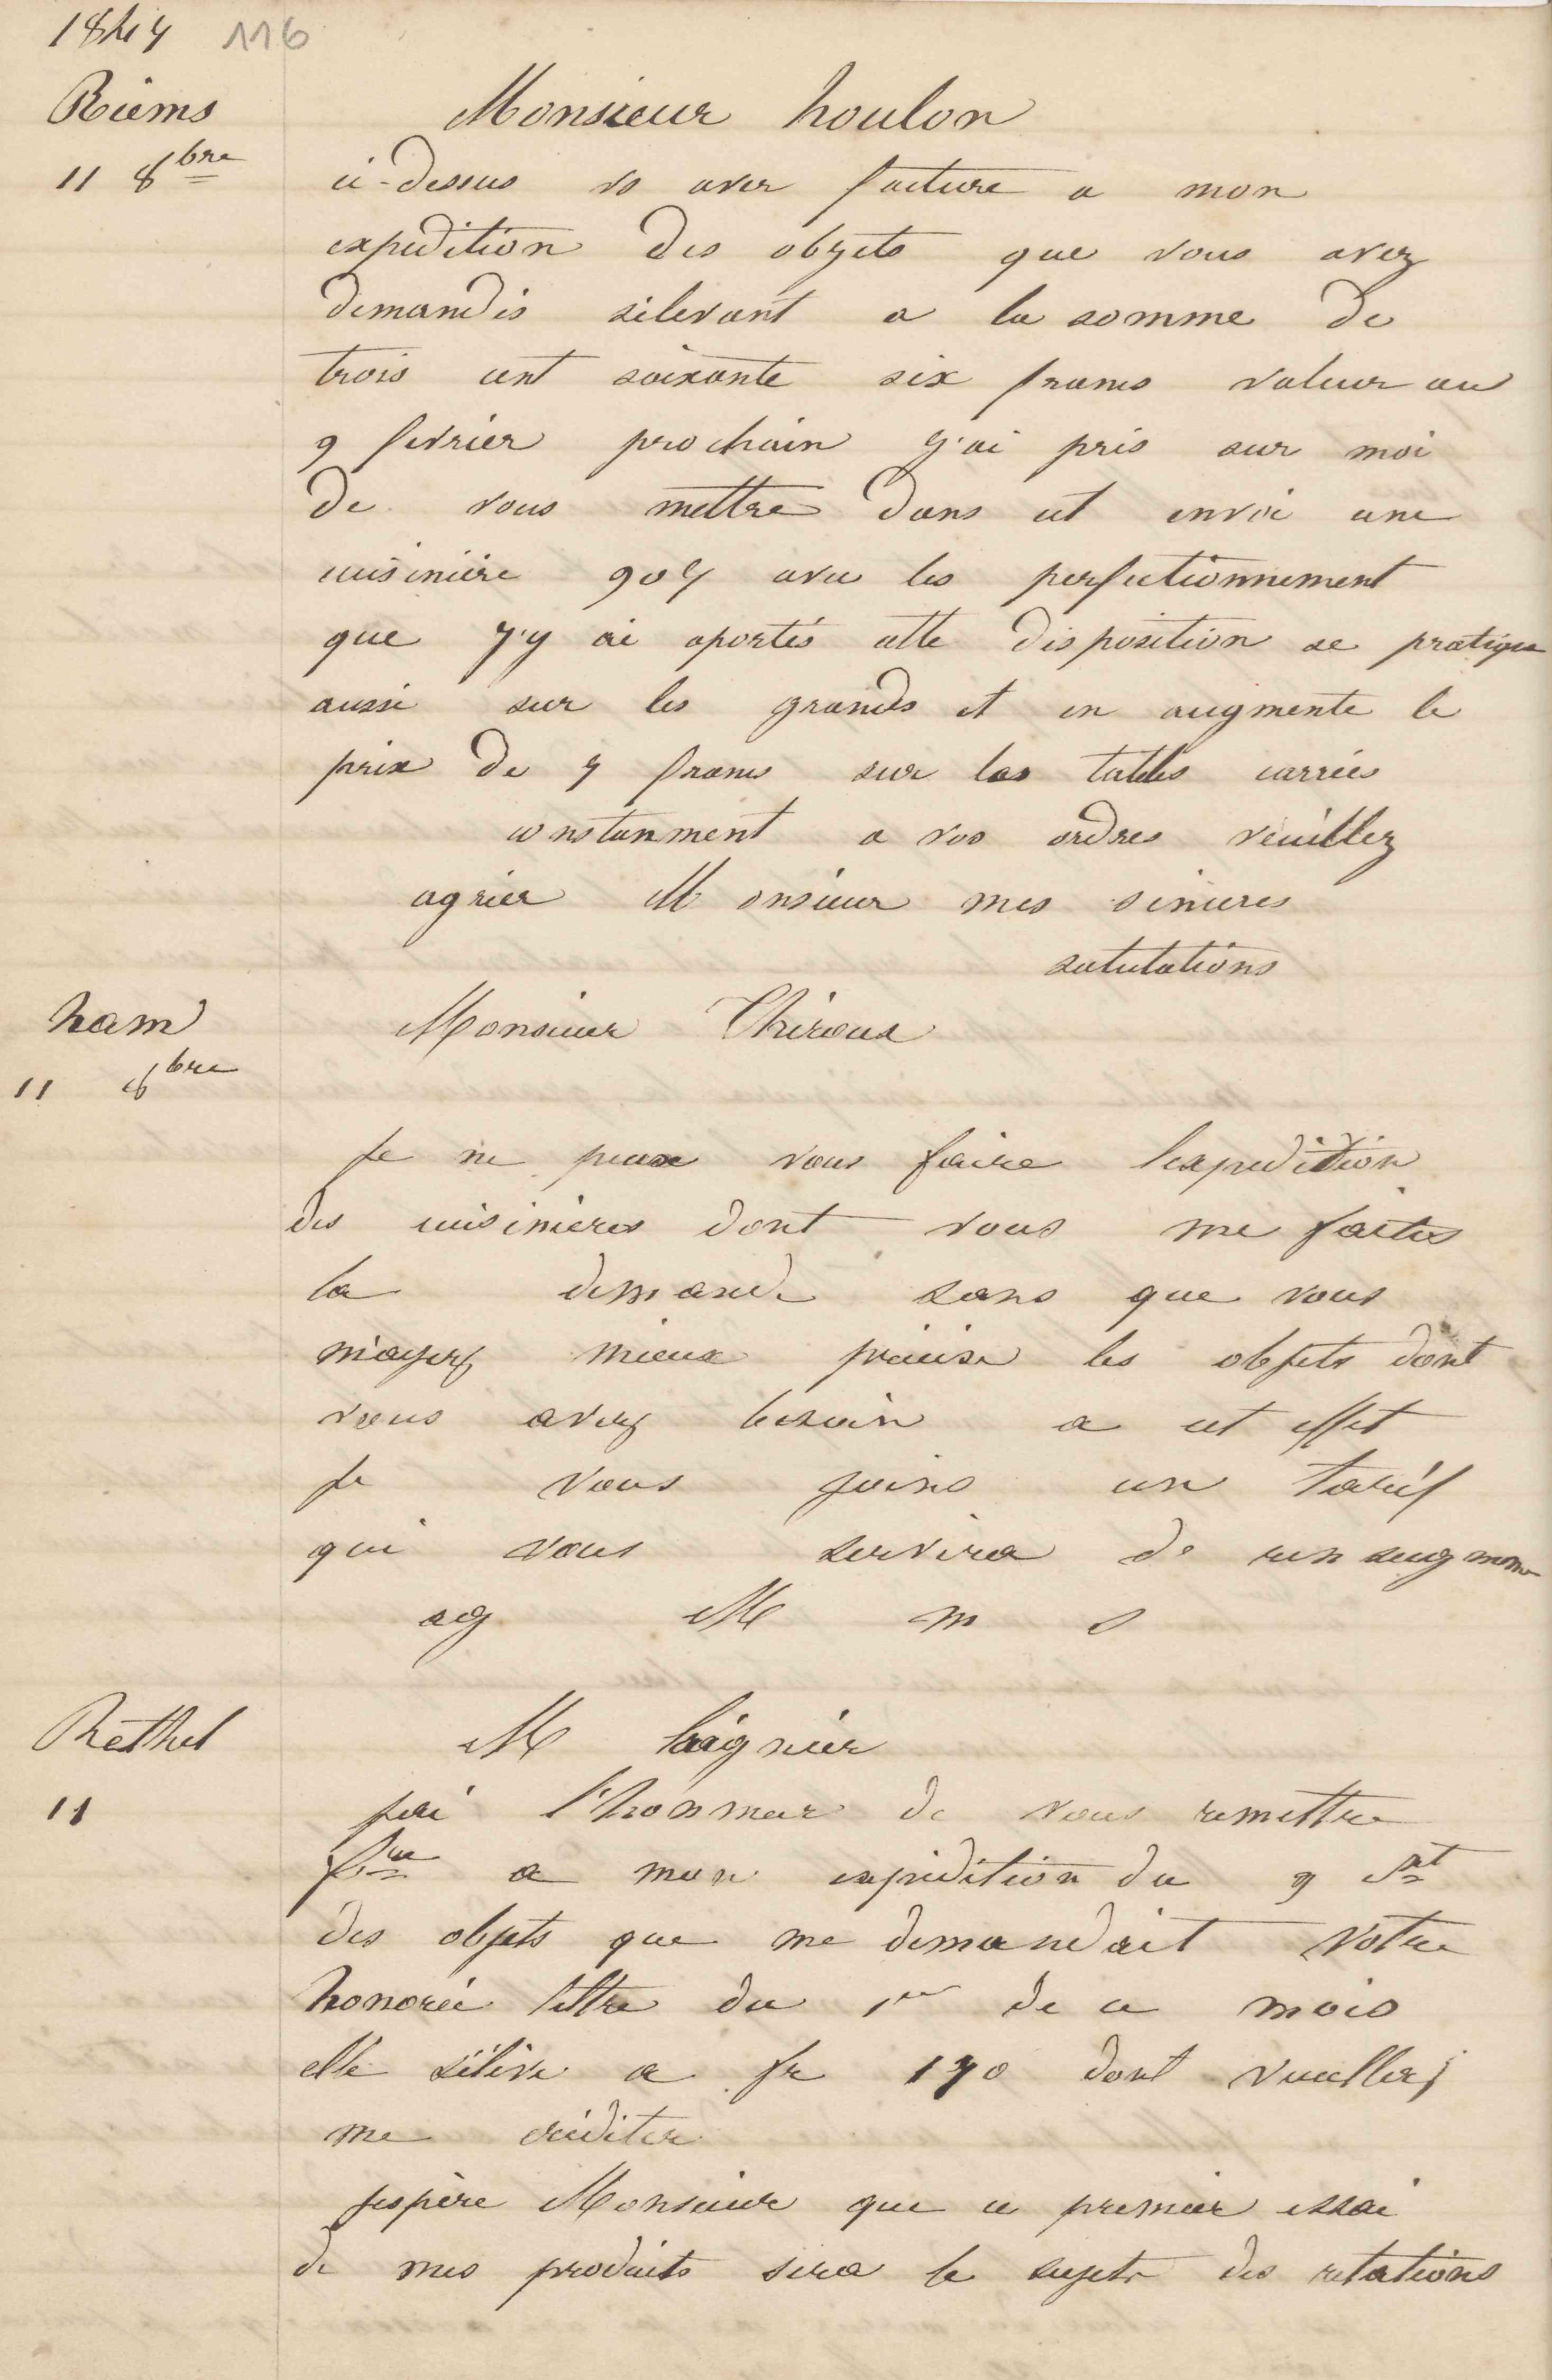 1844 116
Reims
11 8bre
Monsieur houlon
ci-dessus vs avez facture a mon
expedition des objets que vous avez
demandés sélevant a la somme de
trois cent soixante six francs valeur au
9 fevrier prochain j'ai pris sur moi
de vous mettre dans cet envoi une
cuisinière 907 avec les perfectionnement
que j'y ai aportés cette disposition se pratique
aussi sur les grands et en augmente le
prix de 7 francs sur les tables carrées
constanment a vos ordres veuillez
agréer Monsieur mes sinceres
salutations
ham
11 8bre
Monsieur Thiroux
Je ne peux vous faire lexpedition
des cuisinieres dont vous me faites
la demande sans que vous
m'ayez mieux précisé les objets dont
vous avez besoin a cet effet
je vous joins un tarif
qui vous servira de
ag M m s
Rethel
11
M laignier
jai l'honneur de vous remettre
fre a mon expédition du 9 ct
des objets que me demandait votre
honorée lettre du 1er de ce mois
elle s'élève a fr 170 dont veuillez
me créditer
jespère Monsieur que ce premier essai
de mes produits sera le sujets des relations